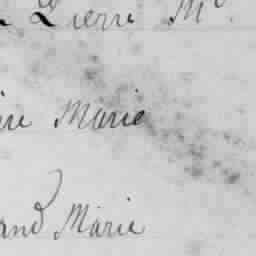 Pierre M
Marie
and Marie